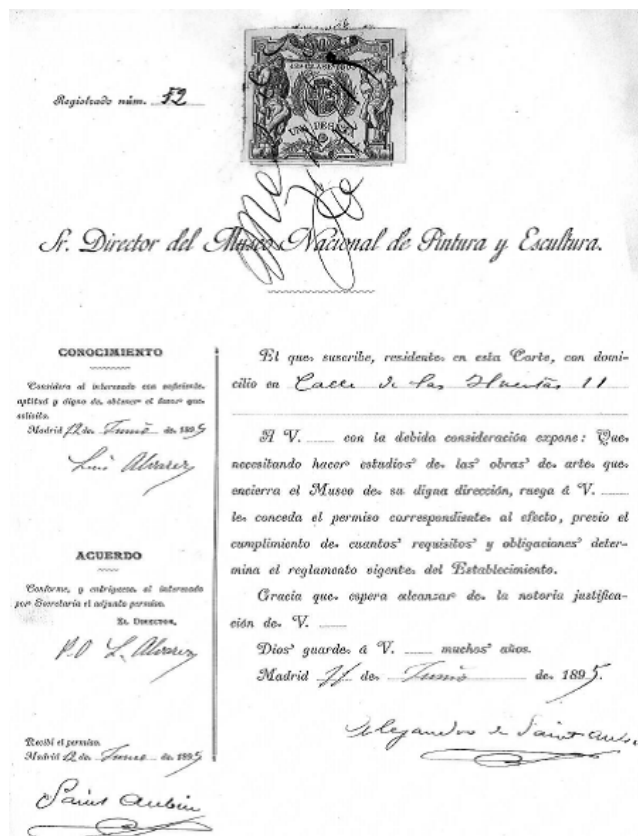 Registrado núm. 52
UNA PESETA
Sr. Director del Museo Nacional de Pintura y Escultura.
CONOCIMIENTO
Considero al interesado con suficiente
aptitud y digno de obtener el favor que
solicita.
Madrid 12 de Junio de 1895
Luis Alvarez
ACUERDO
Conforme, y entréguese al interesado
por Secretaría el adjunto permiso.
EL DIRECTOR,
P.O L. Alvarez
Recibí el permiso.
Madrid 12 de Junio de 1895
Saint Aubin
El que suscribe, residente en esta Corte, con domi-
cilio en Calle de las Huertas 11
A V. con la debida consideración expone: Que
necesitando hacer estudios de las obras de arte que
encierra el Museo de su digna dirección, ruega á V.
le conceda el permiso correspondiente al efecto, previo el
cumplimiento de cuantos requisitos y obligaciones deter-
mina el reglamento vigente del Establecimiento.
Gracia que espera alcanzar de la notoria justifica-
ción de V.
Dios guarde á V. muchos años.
Madrid 11 de Junio de 1895.
Alejandro de Saint Aubin